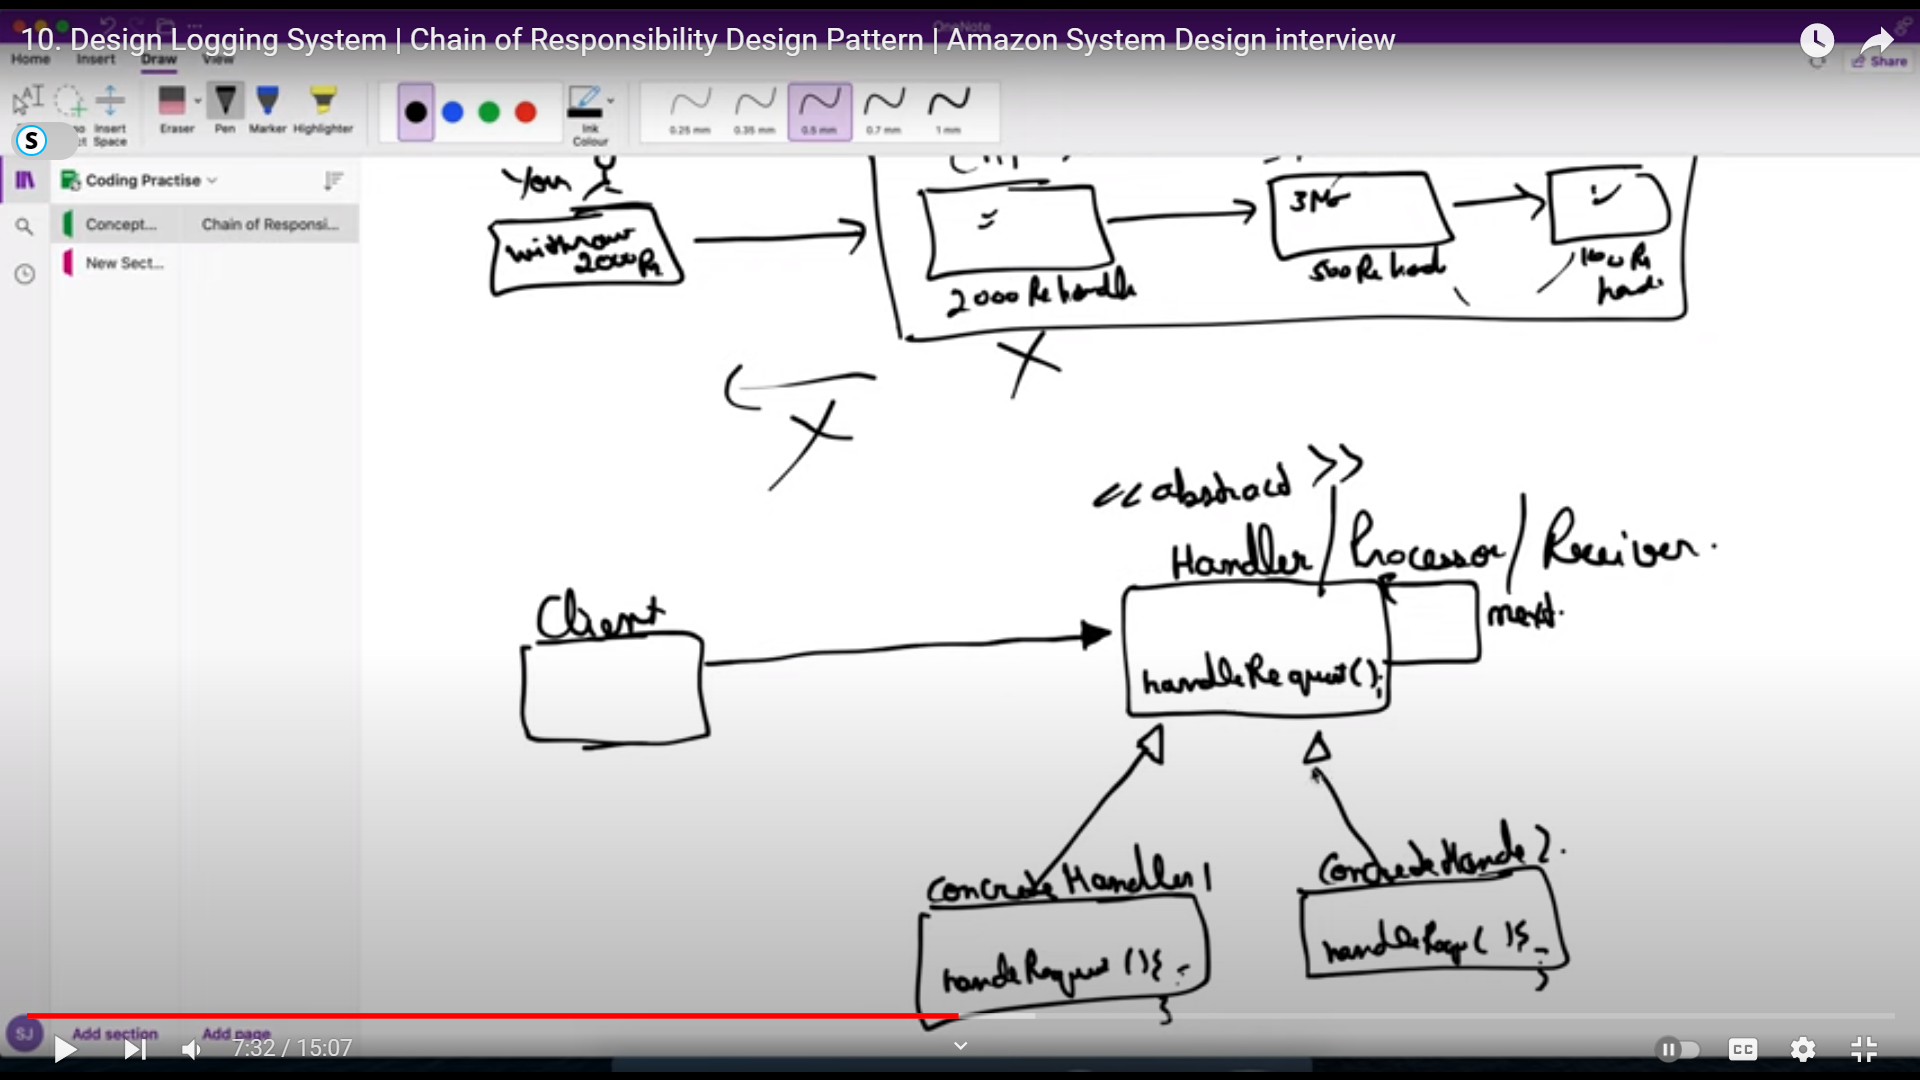 10. Design Logging System | Chain of Responsibility Design Pattern | Amazon System Design interview
OneNote
Home Insert Draw View
Share
Insert Space
Eraser
Pen
Marker
Highlighter
Ink Colour
0.25 mm
0.35 mm
0.5 mm
0.7 mm
1 mm
S
Coding Practise
Concept...
Chain of Responsi...
New Sect...
You
withraw
2000 Rs
2000 Rs handle
500 Rs
<< abstract >>
Handler / Processor / Receiver.
next.
handleRequest();
Client
Concrete Handler 1
handleRequest (){
}
Concrete Hande 2.
( ){
}
SJ
Add section
Add page
7:32 / 15:07
CC